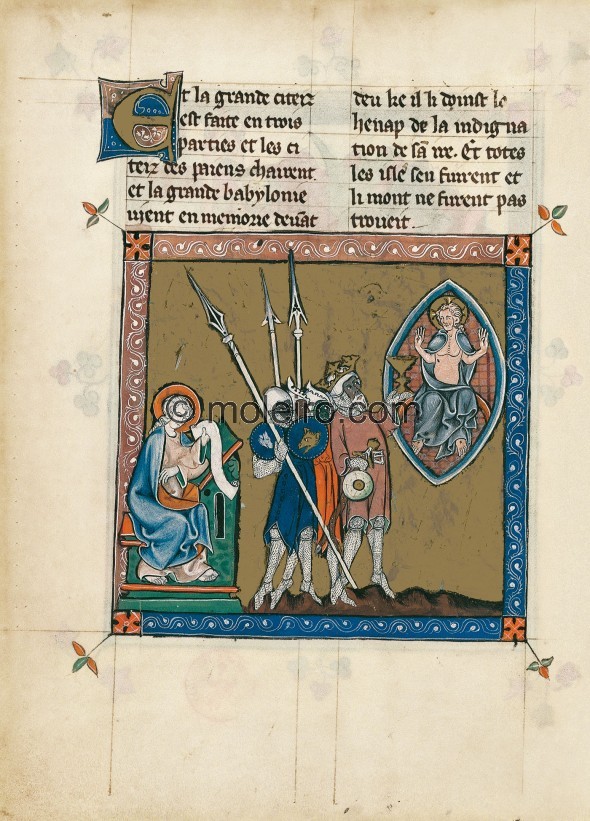 Et la grande citeiz
est faite en trois
parties et les ci
teiz des paiens chairent
et la grande babylonie
vient en memorie devāt
deu ke il li doinst le
henap de la indigna
tion de sā ire. Et totes
les isle seu fuirent et
li mont ne furent pas
troveit.
© moleiro.com